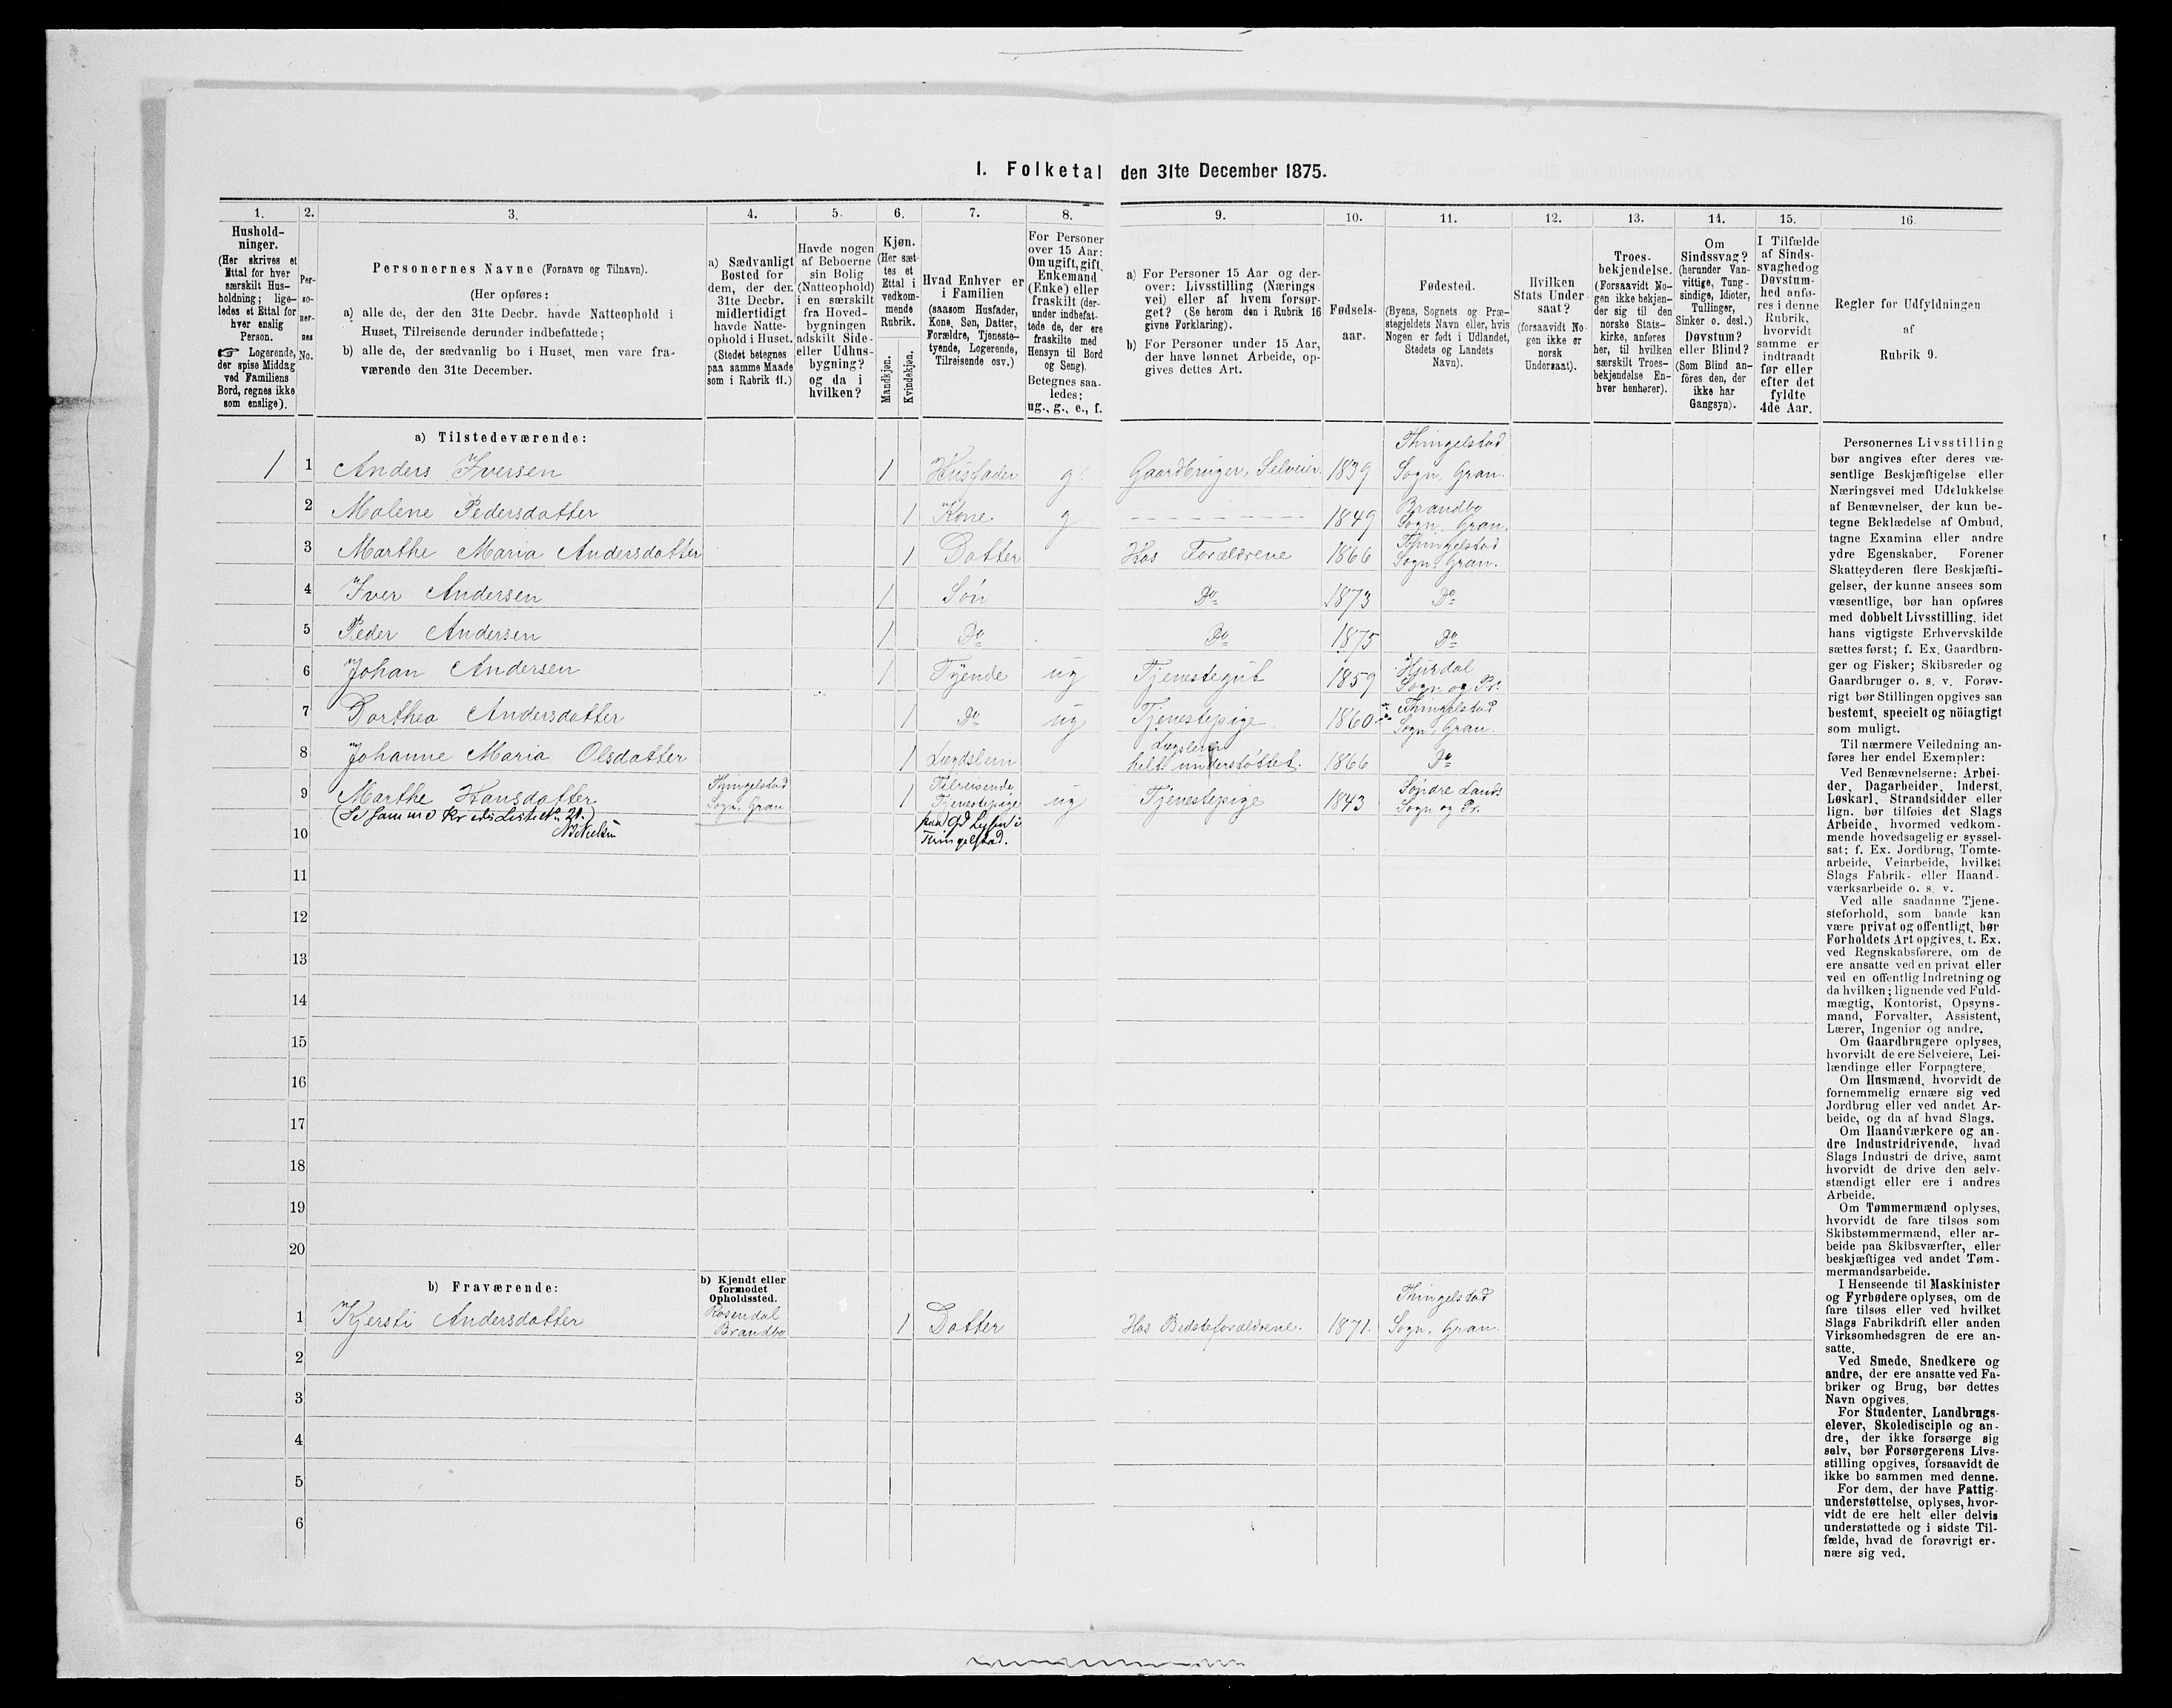 I. Folketal den 31te December 1875.
1.
2.
3.
4.
5.
6.
7.
8.
9.
10.
11.
12.
13.
14.
15.
16
Hushold-
ninger.
(Her skrives et
Ettal for hver
særskilt Hus-
holdning; lige-
ledes et Ettal for
hver enslig
Person.
☞ Logerende,
der spise Middag
ved Familiens
Bord, regnes ikke
som enslige).
Per-
so-
ner-
nes
No.
Personernes Navne (Fornavn og Tilnavn).
(Her opføres:
a) alle de, der den 31te Decbr. havde Natteophold i
Huset, Tilreisende derunder indbefattede;
b) alle de, der sædvanlig bo i Huset, men vare fra-
værende den 31te December.
a) Sædvanligt
Bosted for
dem, der den
31te Decbr.
midlertidigt
havde Natte-
ophold i Huset.
(Stedet betegnes
paa samme Maade
som i Rubrik 11.)
Havde nogen
af Beboerne
sin Bolig
(Natteophold)
i en særskilt
fra Hoved-
bygningen
adskilt Side-
eller Udhus-
bygning?
og da i
hvilken?
Kjøn.
(Her sæt-
tes et
Ettal i
vedkom-
mende
Rubrik.
Mandkjøn.
Kvindekjøn.
Hvad Enhver er
i Familien
(saasom Husfader,
Kone, Søn, Datter,
Forældre, Tjeneste-
tyende, Logerende,
Tilreisende osv.)
For Personer
over 15 Aar:
Om ugift, gift,
Enkemand
(Enke) eller
fraskilt (der-
under indbefat-
tede de, der ere
fraskilte med
Hensyn til Bord
og Seng).
Betegnes saa-
ledes:
ug., g., e., f.
a) For Personer 15 Aar og der-
over: Livsstilling (Nærings
vei) eller af hvem forsør-
get? (Se herom den i Rubrik 16
givne Forklaring).
b) For Personer under 15 Aar,
der have lønnet Arbeide, op-
gives dettes Art.
Fødsels-
aar.
Fødested.
(Byens, Sognets og Præ-
stegjeldets Navn eller, hvis
Nogen er født i Udlandet,
Stedets og Landets
Navn).
Hvilken
Stats Under-
saat?
(forsaavidt No-
gen ikke er
norsk
Undersaat).
Troes-
bekjendelse.
(Forsaavidt No-
gen ikke bekjen-
der sig til den
norske Stats-
kirke, anføres
her, til hvilken
særskilt Troes-
bekjendelse En-
hver henhører).
Om
Sindssvag?
(herunder Van-
vittige, Tung-
sindige, Idioter,
Tullinger,
Sinker o. desl.)
Døvstum?
eller Blind?
(Som Blind an-
føres den, der
ikke har
Gangsyn).
I Tilfælde
af Sinds-
svaghed og
Døvstum-
hed anfø-
res i denne
Rubrik,
hvorvidt
samme er
indtraadt
før eller
efter det
fyldte
4de Aar.
Regler for Udfyldningen
af
Rubrik 9.
a) Tilstedeværende:
1 1 Anders Iversen 1 Husfader g Gaardbruger, Selveier 1839 Thingelstad Sogn, Gran.
2 Malene Pedersdatter 1 Kone g 1849 Brandbo Sogn, Gran.
3 Marthe Maria Andersdatter 1 Datter Hos Forældrene 1866 Thingelstad Sogn, Gran.
4 Iver Andersen 1 Søn Do 1873 Do
5 Peder Andersen 1 Do Do 1875 Do
6 Johan Andersen 1 Tyende ug Tjenestegut 1859 Hurdal Sogn og Pr.
7 Dorthea Andersdatter 1 Do ug Tjenestepige 1860 Thingelstad Sogn, Gran.
8 Johanne Maria Olsdatter 1 Lægdslem Lægslem helt understøttet. 1866 Do
9 Marthe Hansdatter Thingelstad Sogn, Gran 1 Tilreisende Tjenestepige ug Tjenestepige 1843 Søndre Lands Sogn og Pr.
(Se samme Kredis Liste No. 21.) paa Gd
N. Nielsen Thingelstad.
10
11
12
13
14
15
16
17
18
19
20
b) Fraværende:
b) Kjendt eller
formodet
Opholdssted.
1 Kjersti Andersdatter Rosendal Brandbo 1 Datter Hos Bedsteforældrene. 1871. Thingelstad Sogn, Gran.
2
3
4
5
6
Personernes Livsstilling
bør angives efter deres væ-
sentlige Beskjæftigelse eller
Næringsvei med Udelukkelse
af Benævnelser, der kun be-
tegne Beklædelse af Ombud,
tagne Examina eller andre
ydre Egenskaber. Forener
Skatteyderen flere Beskjæfti-
gelser, der kunne ansees som
væsentlige, bør han opføres
med dobbelt Livsstilling, idet
hans vigtigste Erhvervskilde
sættes først; f. Ex. Gaardbru-
ger og Fisker; Skibsreder og
Gaardbruger o. s. v. Forøv-
rigt bør Stillingen opgives saa
bestemt, specielt og nöiagtigt
som muligt.
Til nærmere Veiledning an-
føres her endel Exempler:
Ved Benævnelserne: Arbei-
der, Dagarbeider, Inderst,
Løskarl, Strandsidder eller
lign. bør tilføies det Slags
Arbeide, hvormed vedkom-
mende hovedsagelig er syssel-
sat; f. Ex. Jordbrug, Tomte-
arbeide, Veiarbeide, hvilket
Slags Fabrik- eller Haand-
værksarbeide o. s. v.
Ved alle saadanne Tjene-
steforhold, som baade kan
være privat og offentligt, bør
Forholdets Art opgives, t. Ex.
ved Regnskabsførere, om de
ere ansatte ved en privat eller
ved en offentlig Indretning og
da hvilken; lignende ved Fuld-
mægtig, Kontorist, Opsyns-
mand, Forvalter, Assistent,
Lærer, Ingeniør og andre.
Om Gaardbrugere oplyses,
hvorvidt de ere Selveiere, Lei-
lændinge eller Forpagtere.
Om Husmænd, hvorvidt de
fornemmelig ernære sig ved
Jordbrug eller ved andet Ar-
beide, og da af hvad Slags.
Om Haandværkere og an-
dre Industridrivende, hvad
Slags Industri de drive, samt
hvorvidt de drive den selv-
stændigt eller ere i andres
Arbeide.
Om Tømmermænd oplyses,
hvorvidt de fare tilsøs som
Skibstømmermænd, eller ar-
beide paa Skibsværfter, eller
beskjæftiges ved andet Tøm-
mermandsarbeide.
I Henseende til Maskinister
og Fyrbødere oplyses, om de
fare tilsøs eller ved hvilket
Slags Fabrikdrift eller anden
Virksomhedsgren de ere an-
satte.
Ved Smede, Snedkere og
andre, der ere ansatte ved Fa-
briker og Brug, bør dettes
Navn opgives.
For Studenter, Landbrugs-
elever, Skoledisciple og an-
dre, der ikke forsørge sig
selv, bør Forsørgerens Livs-
stilling opgives, forsaavidt de
ikke bo sammen med denne.
For dem, der have Fattig-
understøttelse, oplyses, hvor-
vidt de ere helt eller delvis
understøttede og i sidste Til-
fælde, hvad de forøvrigt er-
nære sig ved.